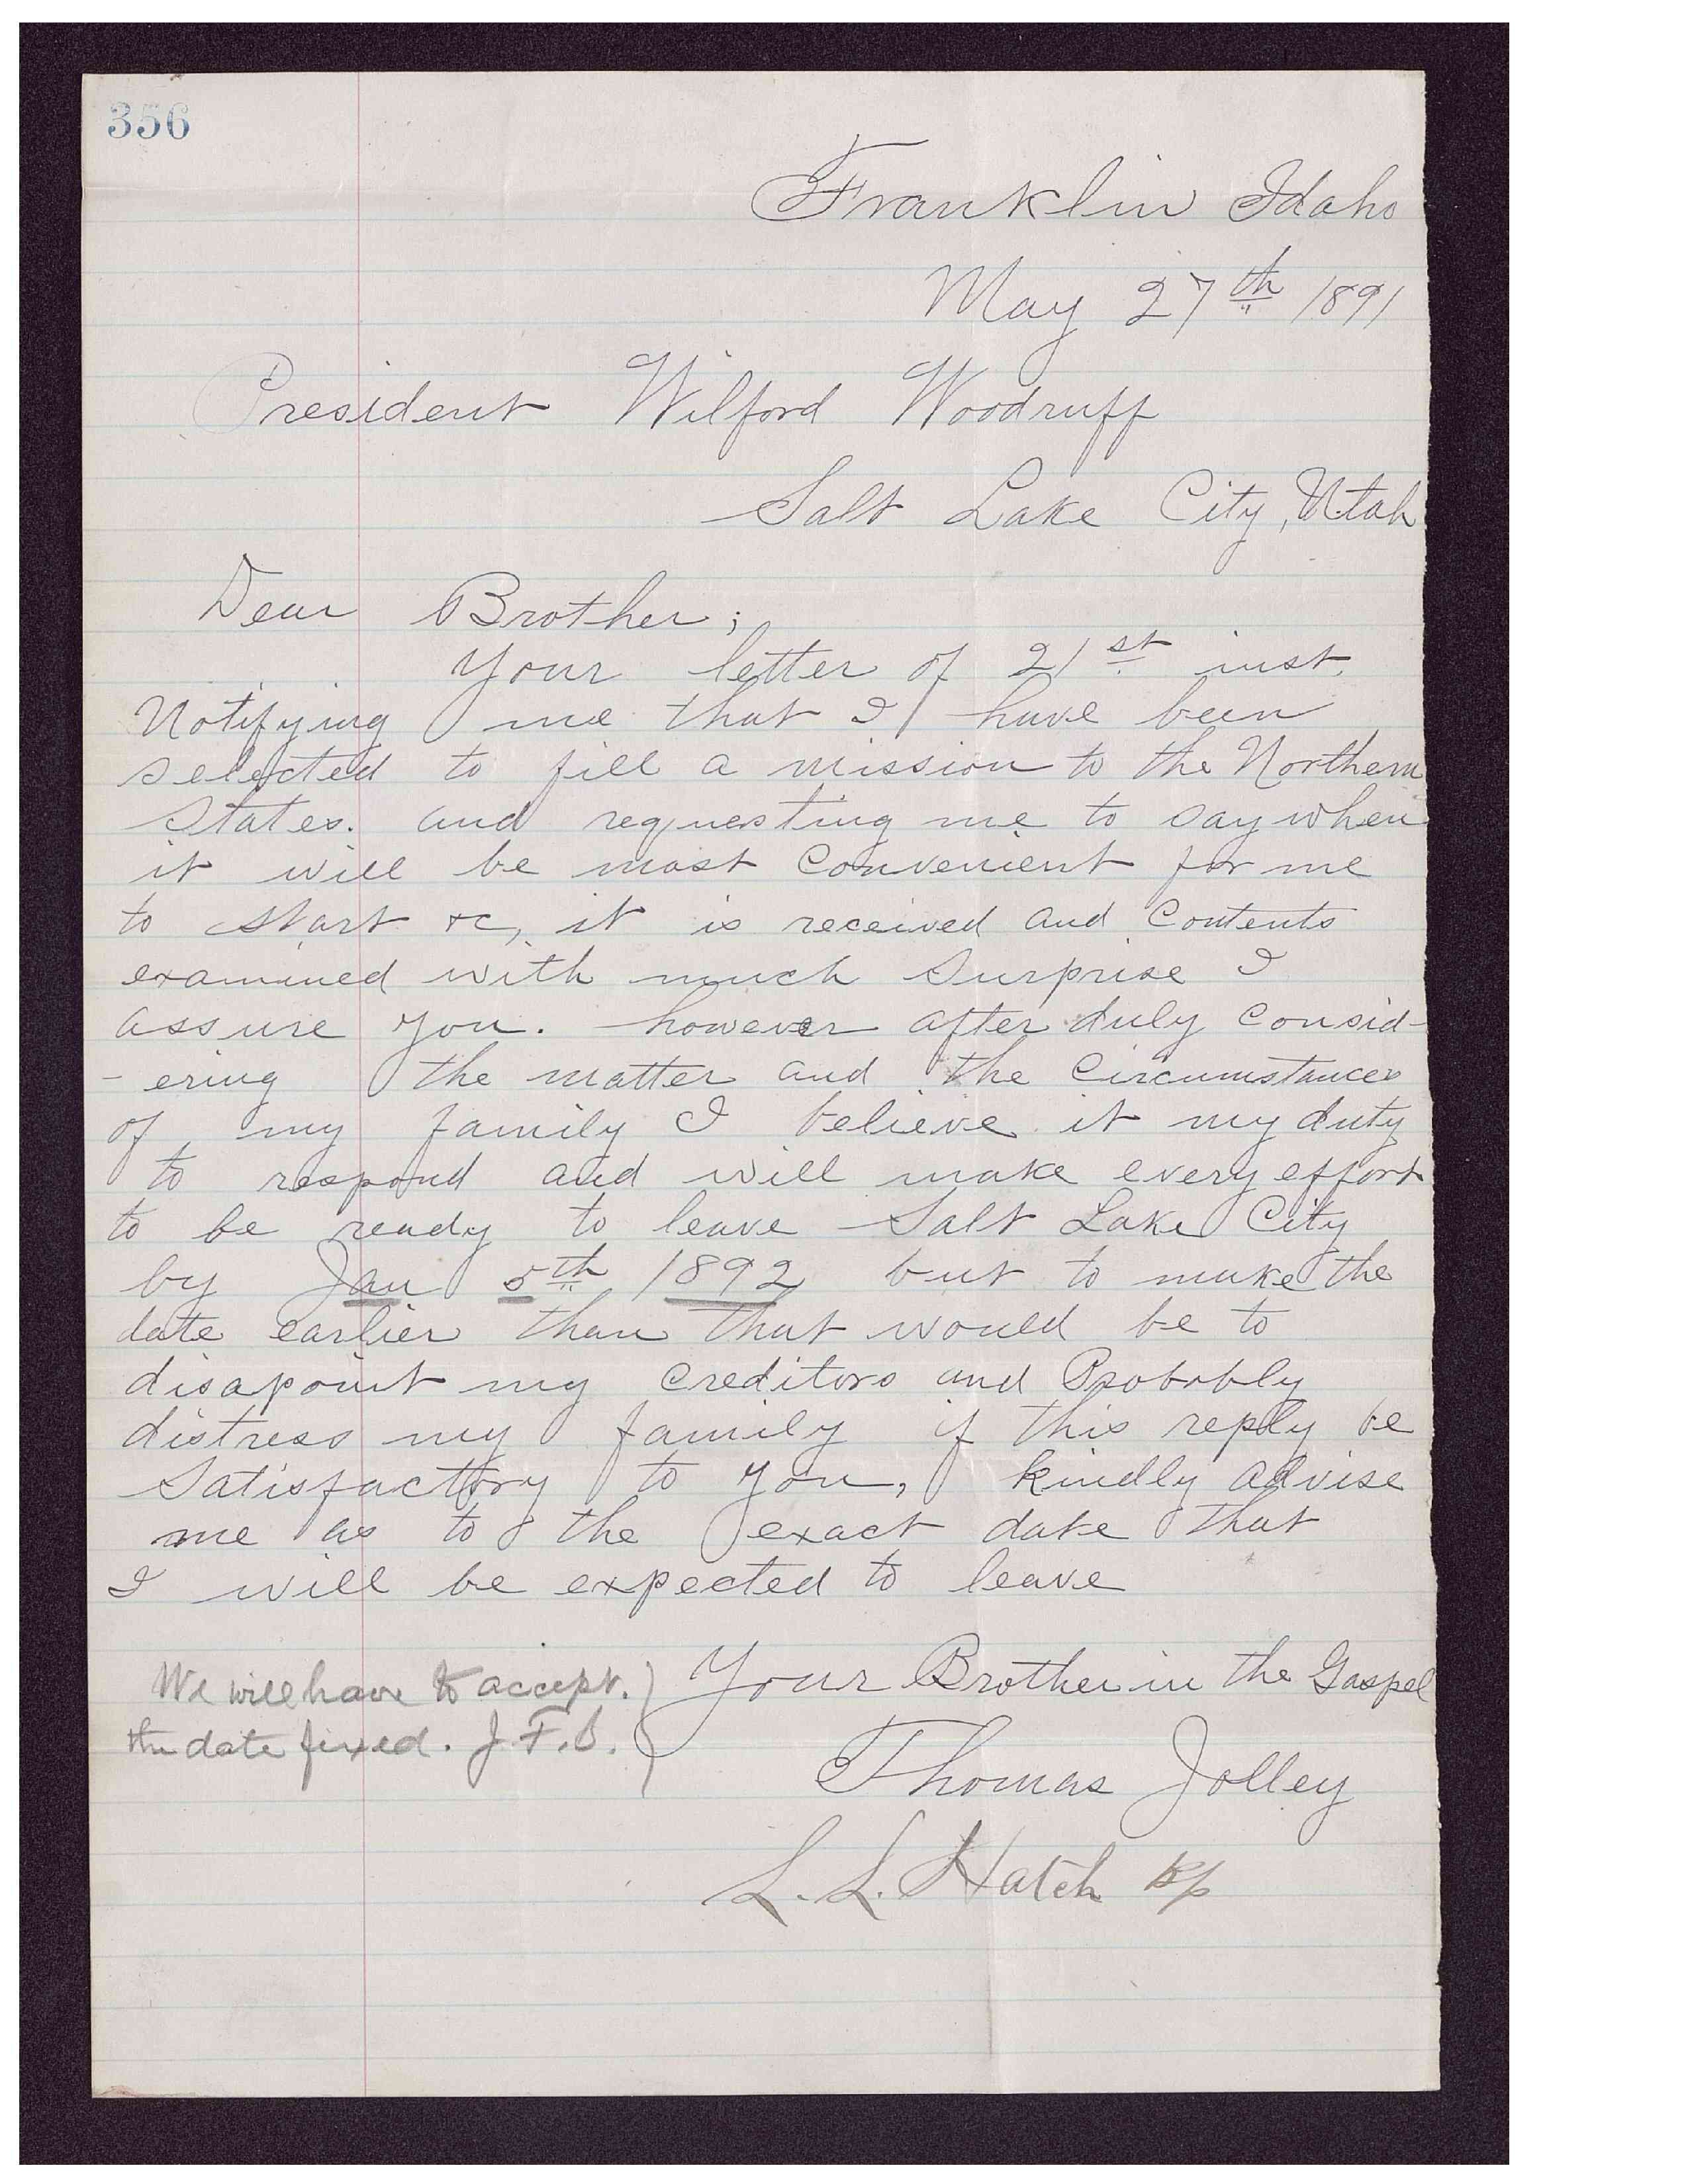 356
Franklin Idaho
May 27th 1891
President Wilford Woodruff
Salt Lake City, Utah
Dear Brother;
Your letter of 21st inst.
Notifying me that I have been
selected to fill a mission to the Northern
States. and requesting me to say when
it will be most Convenient for me
to start &c, it is received and Contents
examined with much Surprise I
assure you. however after duly Consid-
-ering the matter and the Circumstances
of my family I believe it my duty
to respond and will make every effort
to be ready to leave Salt Lake City
by Jan 5th 1892 but to make the
date earlier than that would be to
disapoint my Creditors and Probobly
distress my family if this reply be
Satisfacttory to you, kindly advise
me as to the exact date that
I will be expected to leave
Your Brother in the Gospel
We will have to accept.
the date fixed. J.F.S.
Thomas Jolley
L. L. Hatch Bp